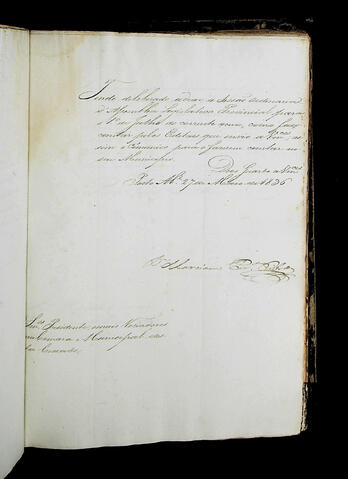 Tendo deliberado adiar a Sessão ordinaria
d'Assemblea Legislativa Provincial para
1º de Julho do corrente anno, como faço
constar pelos Editaes que envio a Vmces
o Communico para o fazerem constar no
seu Municipio.
Deos Guarde a Vmces
27 de Março de 1836
Presidente, e mais Vereadores
Camara Municipal da